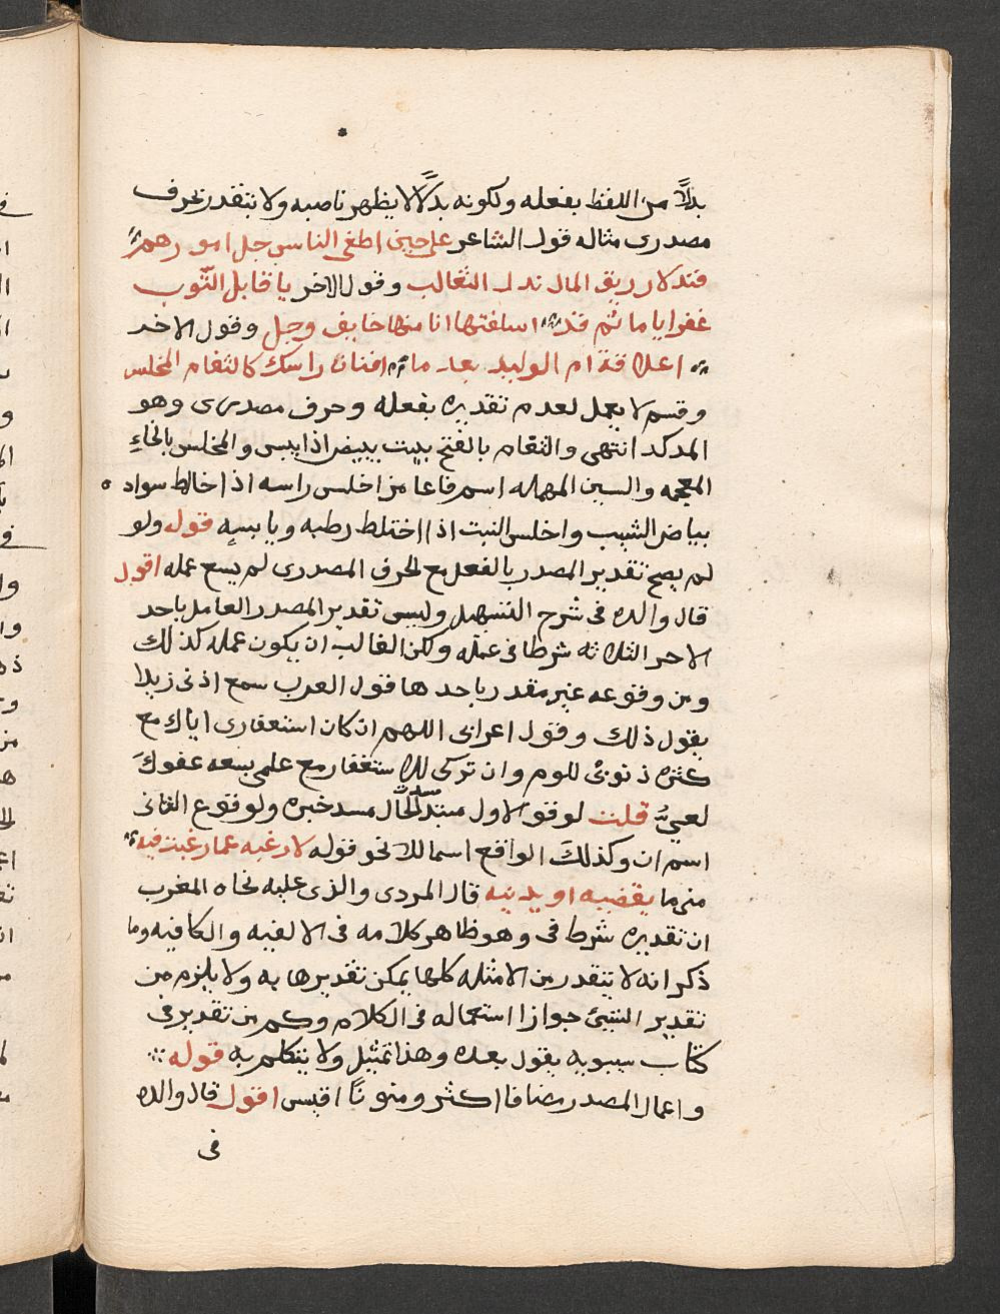 بدلاً من اللفظ بفعله ولكونه بدلاً لا يظهر ناصبه ولا يتقدر بحرف
مصدرى مثاله قول الشاعر على حين الهى الناس جل امورهم
فندلا زريق المال ندل الثعالب وقول الاخر يا قابل التّوب
غفرانا ما ثم قد اسلفتها انا منها خايف وجل وقول الاخر
اعلاقة ام الوليد بعد ما افنان راسك كالثغام المخلس
وقسم لا يعمل لعدم تقديره بفعله وحرف مصدرى وهو
المدكد انتهى والثغام بالفتح بيت يبيض اذا يبس والمخلس بالخاء
المعجمه والسين المهمله اسم فاعا من اخلس راسه اذا خالط سواد
بياض الشيب واخلس النبت اذا اختلط رطبه ويابسه قول ولو
لم يصح تقدير المصدر بالفعل مع الحرف المصدرى لم يسع عمله اقول
قال والده فى شرح التسهيل وليس تقدير المصدر العامل باحد
الاحر الثلاثه شرطا فى عمله ولكن الغالب ان يكون عمله كذلك
ومن وقوعه غير مقدر باحدها قول العرب سمع اذنى زيدا
يقول ذلك وقول اعرابى اللهم ان كان استغفارى اياك مع
كثره ذنوبى للوم وان تركى للاستغفار مع علمى بسعه عفوك
لعيٌّ قلت لوقو الاول مبتدا لحال سد مسد خبره ولوقوع الثانى
اسم ان وكذلك الواقع اسما للا نحو قوله لا رغبه عما رغبت فيه
منى ما يقضيه او يدنيه قال المردى والذى عليه نحاه المغرب
ان تقديره شرط فى وهو ظاهر كلامه فى الالفيه والكافيه وما
ذكر انه لا يتقدر من الامثله كلها يمكن تقديرها به ولا يلزم من
تقدير الشئ جواز استعماله فى الكلام وكم من تقدير فى
كتاب سيبويه يقول بعده وهذا تمثيل ولا يتكلم به قوله
واعمال المصدر مضافا اكثر ومنونًا اقيس اقول قال والده
فى